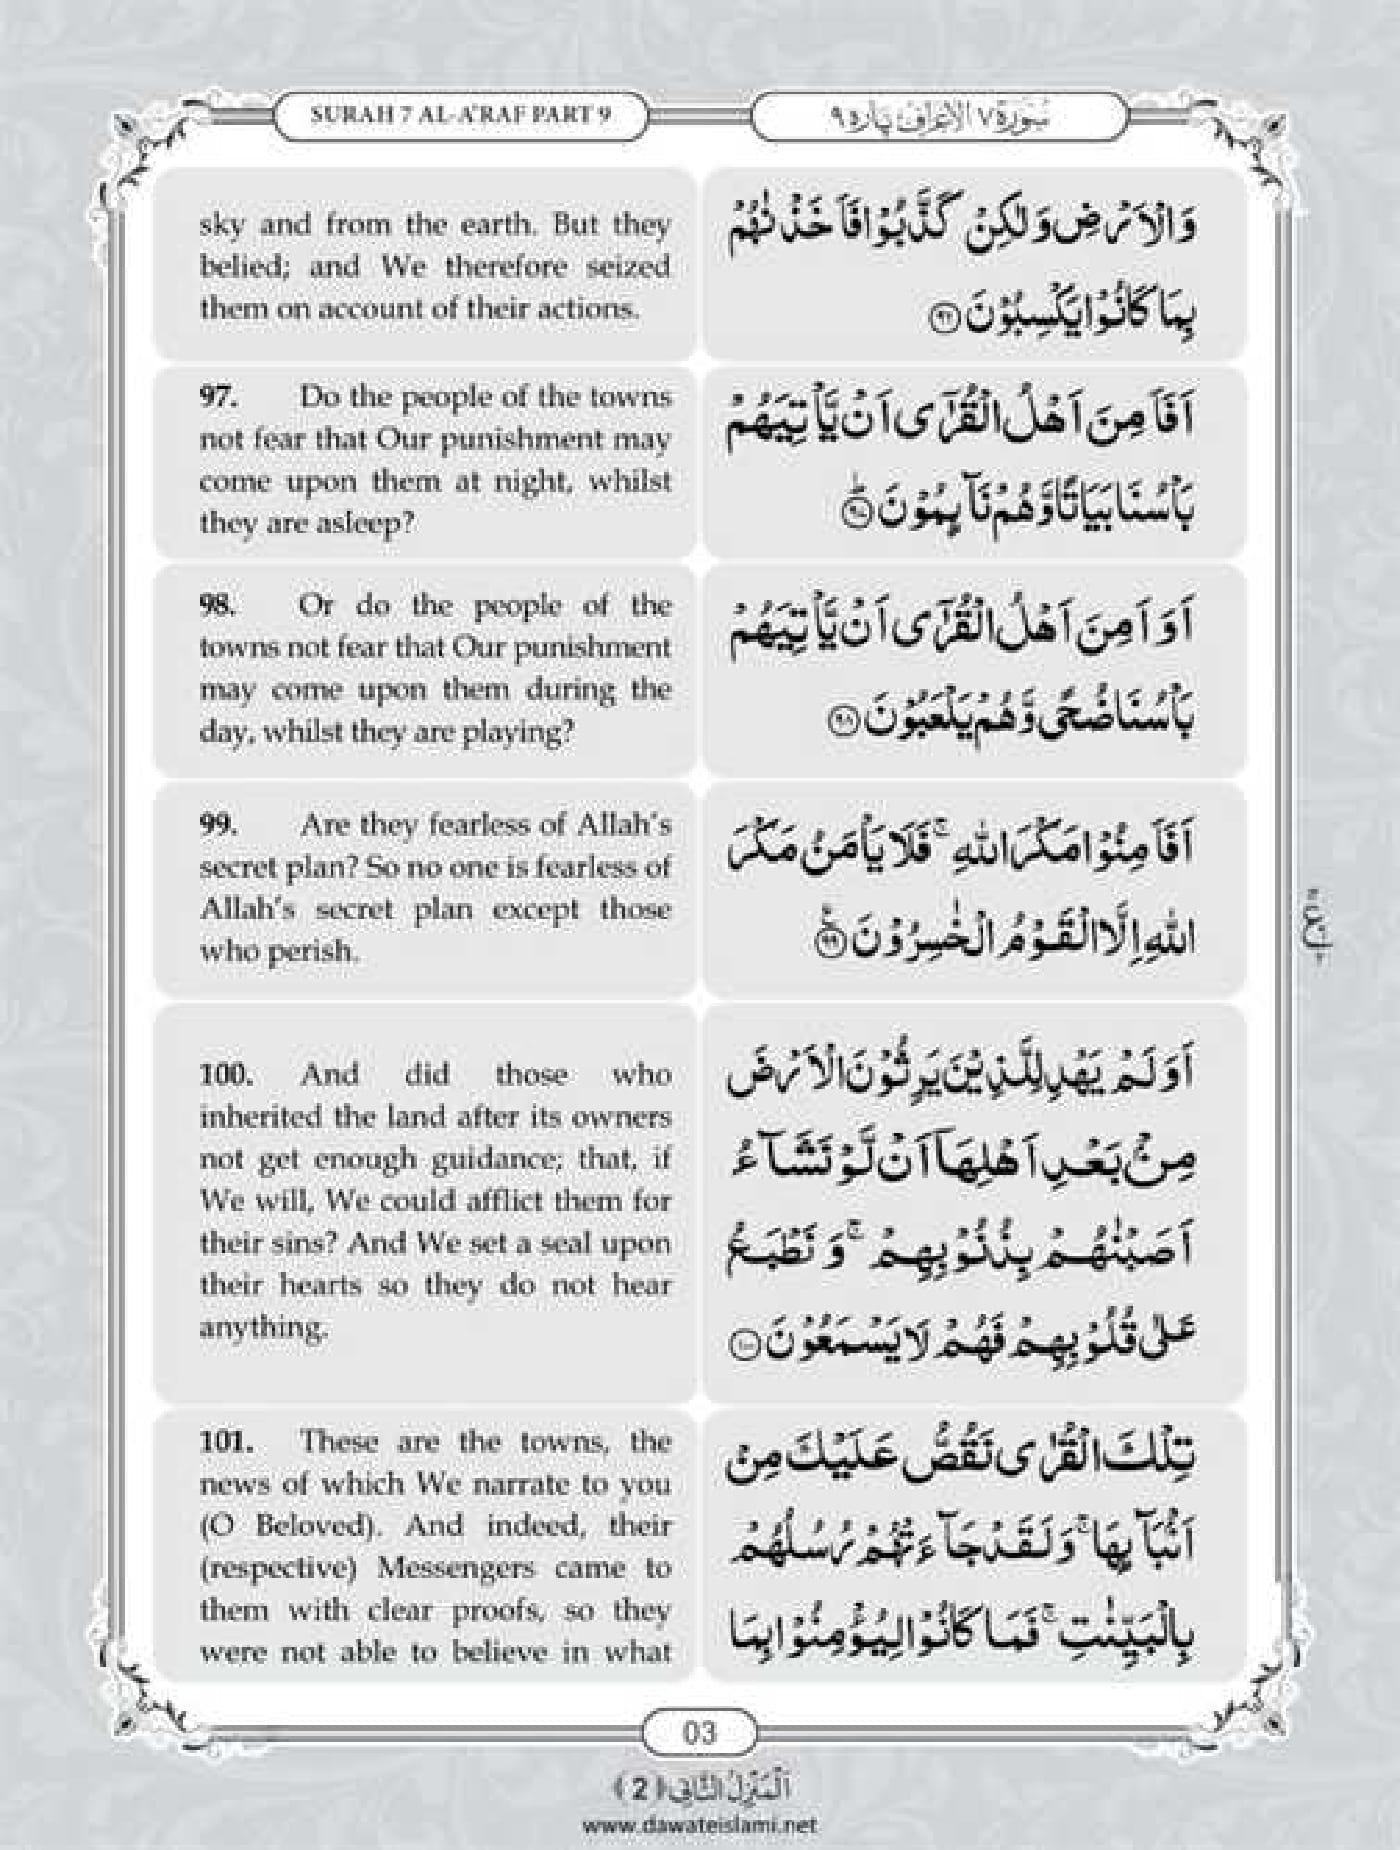 SURAH 7 AL-A'RAF PART 9
سُورَة ٧ الْاَعْرَاف پَارَہ ٩
sky and from the earth. But they
belied; and We therefore seized
them on account of their actions.
وَالْاَرْضِ وَلٰكِنْ كَذَّبُوْا فَاَخَذْنٰهُمْ
بِمَا كَانُوْا يَكْسِبُوْنَ ﴿۹۶﴾
97. Do the people of the towns
not fear that Our punishment may
come upon them at night, whilst
they are asleep?
اَفَاَمِنَ اَهْلُ الْقُرٰۤى اَنْ يَّاْتِيَهُمْ
بَاْسُنَا بَيَاتًا وَّهُمْ نَآىِٕمُوْنَ ﴿۹۷﴾ؕ
98. Or do the people of the
towns not fear that Our punishment
may come upon them during the
day, whilst they are playing?
اَوَ اَمِنَ اَهْلُ الْقُرٰۤى اَنْ يَّاْتِيَهُمْ
بَاْسُنَا ضُحًى وَّهُمْ يَلْعَبُوْنَ ﴿۹۸﴾
99. Are they fearless of Allah's
secret plan? So no one is fearless of
Allah's secret plan except those
who perish.
اَفَاَمِنُوْا مَكْرَ اللّٰهِ ۚ فَلَا يَاْمَنُ مَكْرَ
اللّٰهِ اِلَّا الْقَوْمُ الْخٰسِرُوْنَ ﴿۹۹﴾
100. And did those who
inherited the land after its owners
not get enough guidance; that, if
We will, We could afflict them for
their sins? And We set a seal upon
their hearts so they do not hear
anything.
اَوَلَمْ يَهْدِ لِلَّذِيْنَ يَرِثُوْنَ الْاَرْضَ
مِنْۢ بَعْدِ اَهْلِهَاۤ اَنْ لَّوْ نَشَآءُ
اَصَبْنٰهُمْ بِذُنُوْبِهِمْ ۚ وَ نَطْبَعُ
عَلٰى قُلُوْبِهِمْ فَهُمْ لَا يَسْمَعُوْنَ ﴿۱۰۰﴾
101. These are the towns, the
news of which We narrate to you
(O Beloved). And indeed, their
(respective) Messengers came to
them with clear proofs, so they
were not able to believe in what
تِلْكَ الْقُرٰى نَقُصُّ عَلَيْكَ مِنْ
اَنْۢبَآىِٕهَا ۚ وَلَقَدْ جَآءَتْهُمْ رُسُلُهُمْ
بِالْبَيِّنٰتِ ۚ فَمَا كَانُوْا لِيُؤْمِنُوْا بِمَا
03
اَلْمَنْزِلُ الثَّانِی ﴿2﴾
www.dawateislami.net